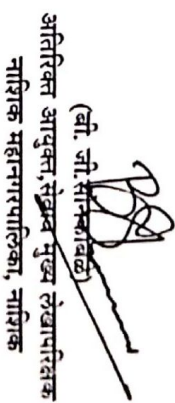 (बी. जी. सोनकांबळे)
अतिरिक्त आयुक्त, तथा मुख्य लेखापरिक्षक
नाशिक महानगरपालिका, नाशिक